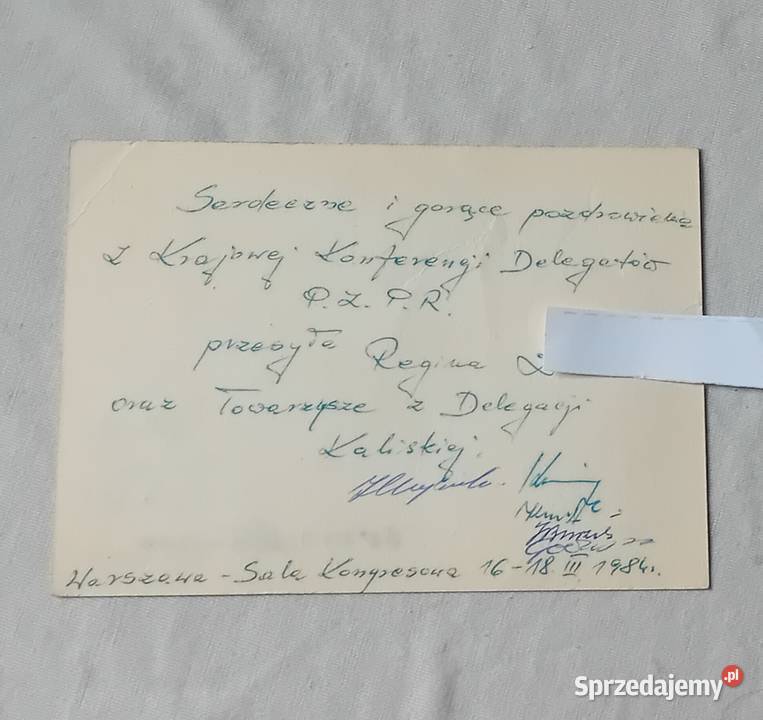 Serdeczne i gorące pozdrowienia
z Krajowej Konferencji Delegatów
P.Z.P.R.
przesyła Regina
oraz Towarzysze z Delegacji
Kaliskiej.
Warszawa - Sala Kongresowa 16-18 III 1984r.
Sprzedajemy.pl